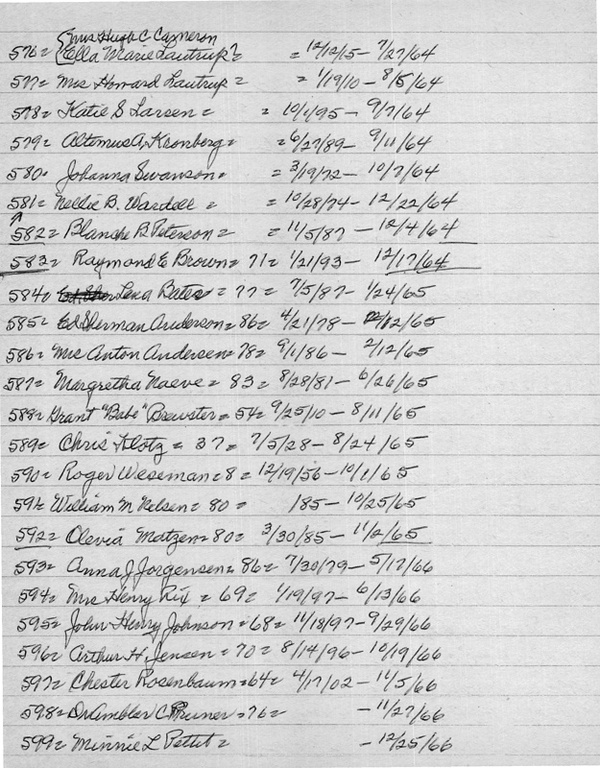 {Mrs Hugh C Cameron
576= {Ella Marie Lautrup? = 12/12/15 - 7/27/64
577= Mrs Howard Lautrup = = 1/19/10 - 8/5/64
578= Katie S Larsen = = 10/1/95 - 9/7/64
579= Altemus A. Kronberg = = 6/27/89 - 9/11/64
580= Johanna Swanson = = 3/19/72 - 10/7/64
581= Nellie B. Wardell = = 10/28/74 - 12/22/64
582= Blanche B Peterson = = 11/5/87 - 12/4/64
583= Raymond E Brown = 71= 1/21/93 - 12/17/64
584= Lena Bates = 77= 7/5/87 - 1/24/65
585= Ed Sherman Anderson = 86= 4/21/78 - 2/12/65
586= Mrs Anton Andersen = 78= 9/1/86 - 2/12/65
587= Margretha Naeve = 83= 8/28/81 - 6/26/65
588= Grant "Babe" Brewster = 54= 9/25/10 - 8/11/65
589= Chris Klotz = 37= 7/5/28 - 8/24/65
590= Roger Weseman = 8= 12/19/56 - 10/1/65
591= William M Nelsen = 80= /85 - 10/25/65
592= Olevia Matzen = 80= 3/30/85 - 11/2/65
593= Anna J Jorgensen = 86= 7/30/79 - 5/17/66
594= Mrs Henry Rix = 69= 1/19/97 - 6/13/66
595= John Henry Johnson = 68= 11/18/97 - 9/29/66
596= Arthur H. Jensen = 70= 8/14/96 - 10/19/66
597= Chester Rosenbaum = 64= 4/17/02 - 11/5/66
598= Dr Ambler C Pruner = 76= - 11/27/66
599= Minnie L Pettit = - 12/25/66